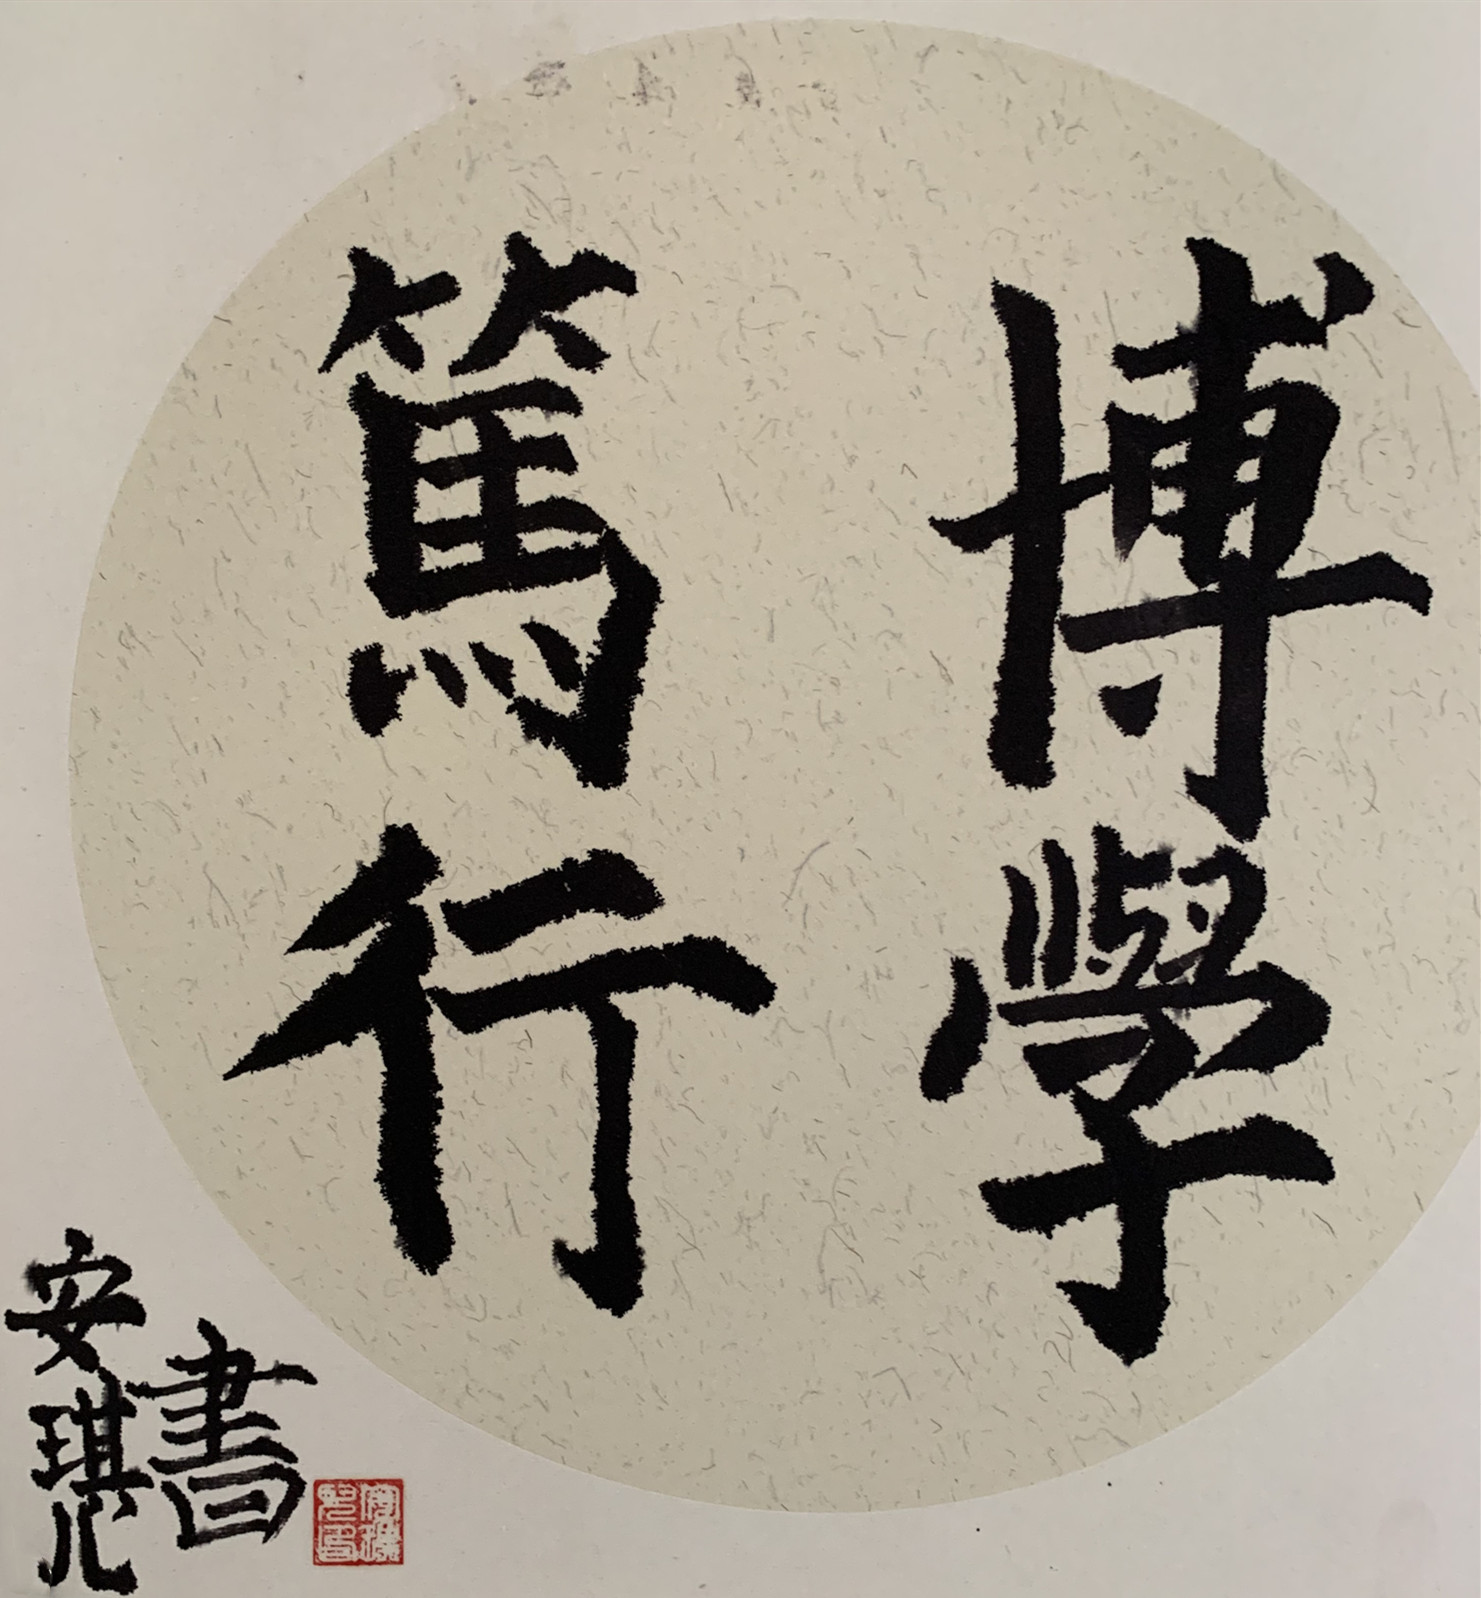 博學
篤行
安琪儿
書